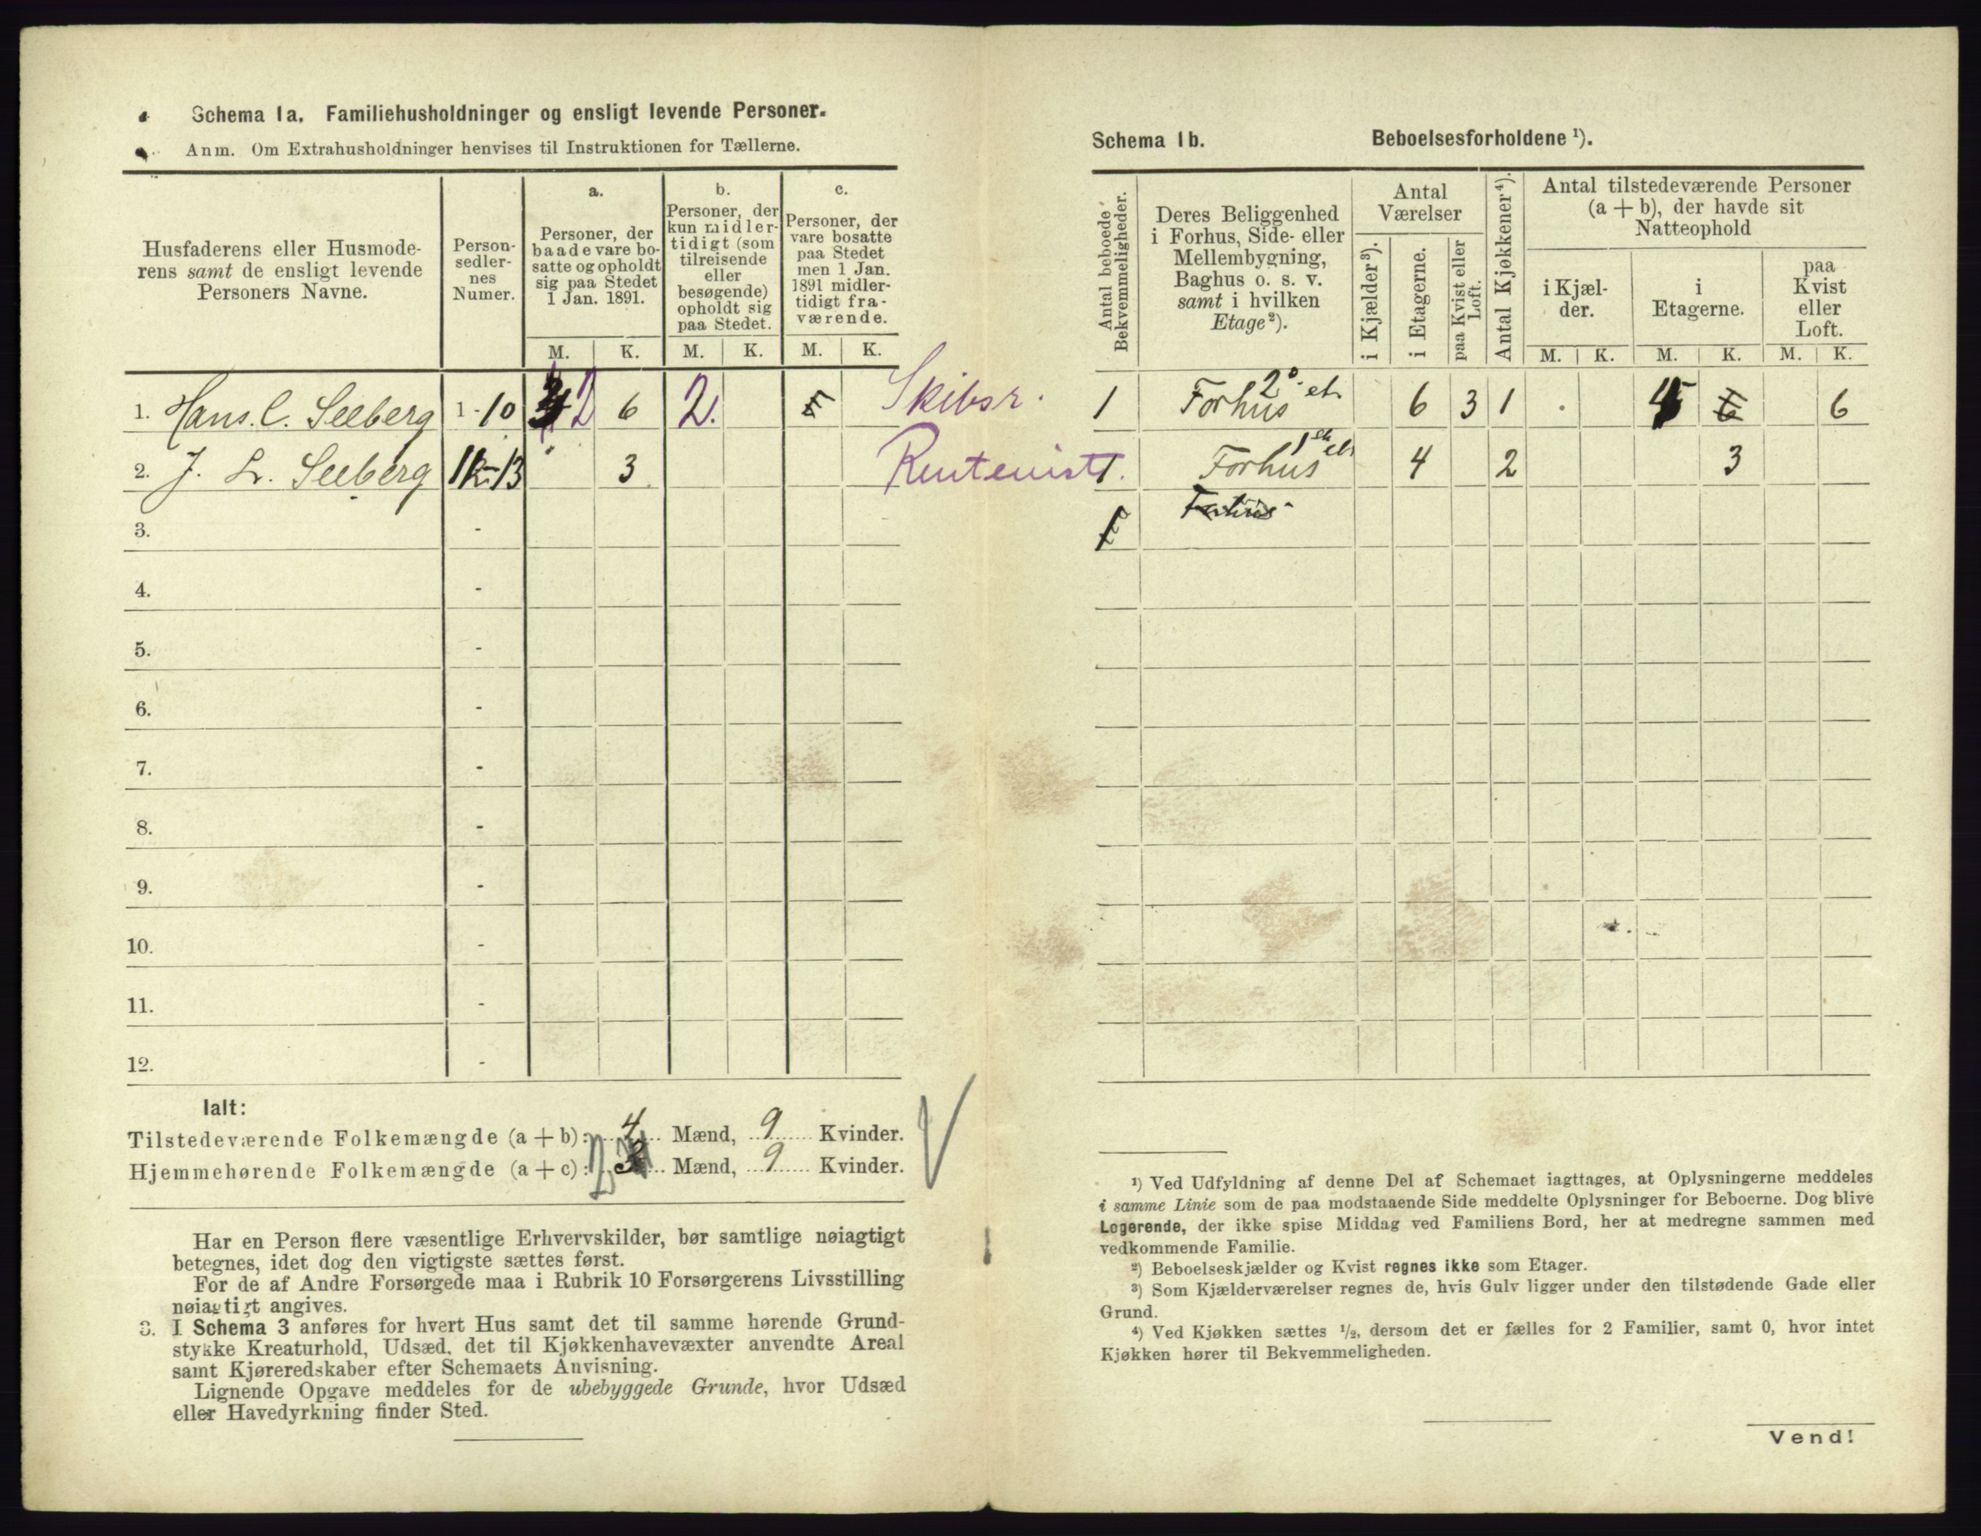 Schema 1a. Familiehusholdninger og ensligt levende Personer.
Anm. Om Extrahusholdninger henvises til Instruktionen for Tællerne.
Husfaderens eller Husmode-
rens samt de ensligt levende
Personers Navne.
Person-
sedler-
nes
Numer.
a.
Personer, der
baade vare bo-
satte og opholdt
sig paa Stedet
1 Jan. 1891.
b.
Personer, der
kun midler-
tidigt (som
tilreisende
eller
besøgende)
opholdt sig
paa Stedet.
c.
Personer, der
vare bosatte
paa Stedet
men 1 Jan.
1891 midler-
tidigt fra-
værende.
M. K. M. K. M. K.
1. Hans. C. Seeberg 1-10 2 6 2. Skibsr.
2. J. L. Seeberg 11-13 3 Rentenist.
3. -
4. -
5. -
6. -
7. -
8. -
9. -
10. -
11. -
12. -
Ialt:
Tilstedeværende Folkemængde (a + b): 4 Mænd, 9 Kvinder.
Hjemmehørende Folkemængde (a + c): 2 Mænd, 9 Kvinder.
Har en Person flere væsentlige Erhvervskilder, bør samtlige nøiagtigt
betegnes, idet dog den vigtigste sættes først.
For de af Andre Forsørgede maa i Rubrik 10 Forsørgerens Livsstilling
nøiagtigt angives.
3. I Schema 3 anføres for hvert Hus samt det til samme hørende Grund-
stykke Kreaturhold, Udsæd, det til Kjøkkenhavevæxter anvendte Areal
samt Kjøreredskaber efter Schemaets Anvisning.
Lignende Opgave meddeles for de ubebyggede Grunde, hvor Udsæd
eller Havedyrkning finder Sted.
Schema 1b. Beboelsesforholdene ¹).
Antal beboede
Bekvemmeligheder.
Deres Beliggenhed
i Forhus, Side- eller
Mellembygning,
Baghus o. s. v.
samt i hvilken
Etage²).
Antal
Værelser
i Kjælder³).
i Etagerne.
paa Kvist eller
Loft.
Antal Kjøkkener⁴).
Antal tilstedeværende Personer
(a + b), der havde sit
Natteophold
i Kjæl-
der.
i
Etagerne.
paa
Kvist
eller
Loft.
M. K. M. K. M. K.
1 Forhus 2° et. 6 3 1 4 6
1 Forhus 1ste et. 4 2 3
¹) Ved Udfyldning af denne Del af Schemaet iagttages, at Oplysningerne meddeles
i samme Linie som de paa modstaaende Side meddelte Oplysninger for Beboerne. Dog blive
Logerende, der ikke spise Middag ved Familiens Bord, her at medregne sammen med
vedkommende Familie.
²) Beboelseskjælder og Kvist regnes ikke som Etager.
³) Som Kjælderværelser regnes de, hvis Gulv ligger under den tilstødende Gade eller
Grund.
⁴) Ved Kjøkken sættes ¹/₂, dersom det er fælles for 2 Familier, samt 0, hvor intet
Kjøkken hører til Bekvemmeligheden.
Vend!